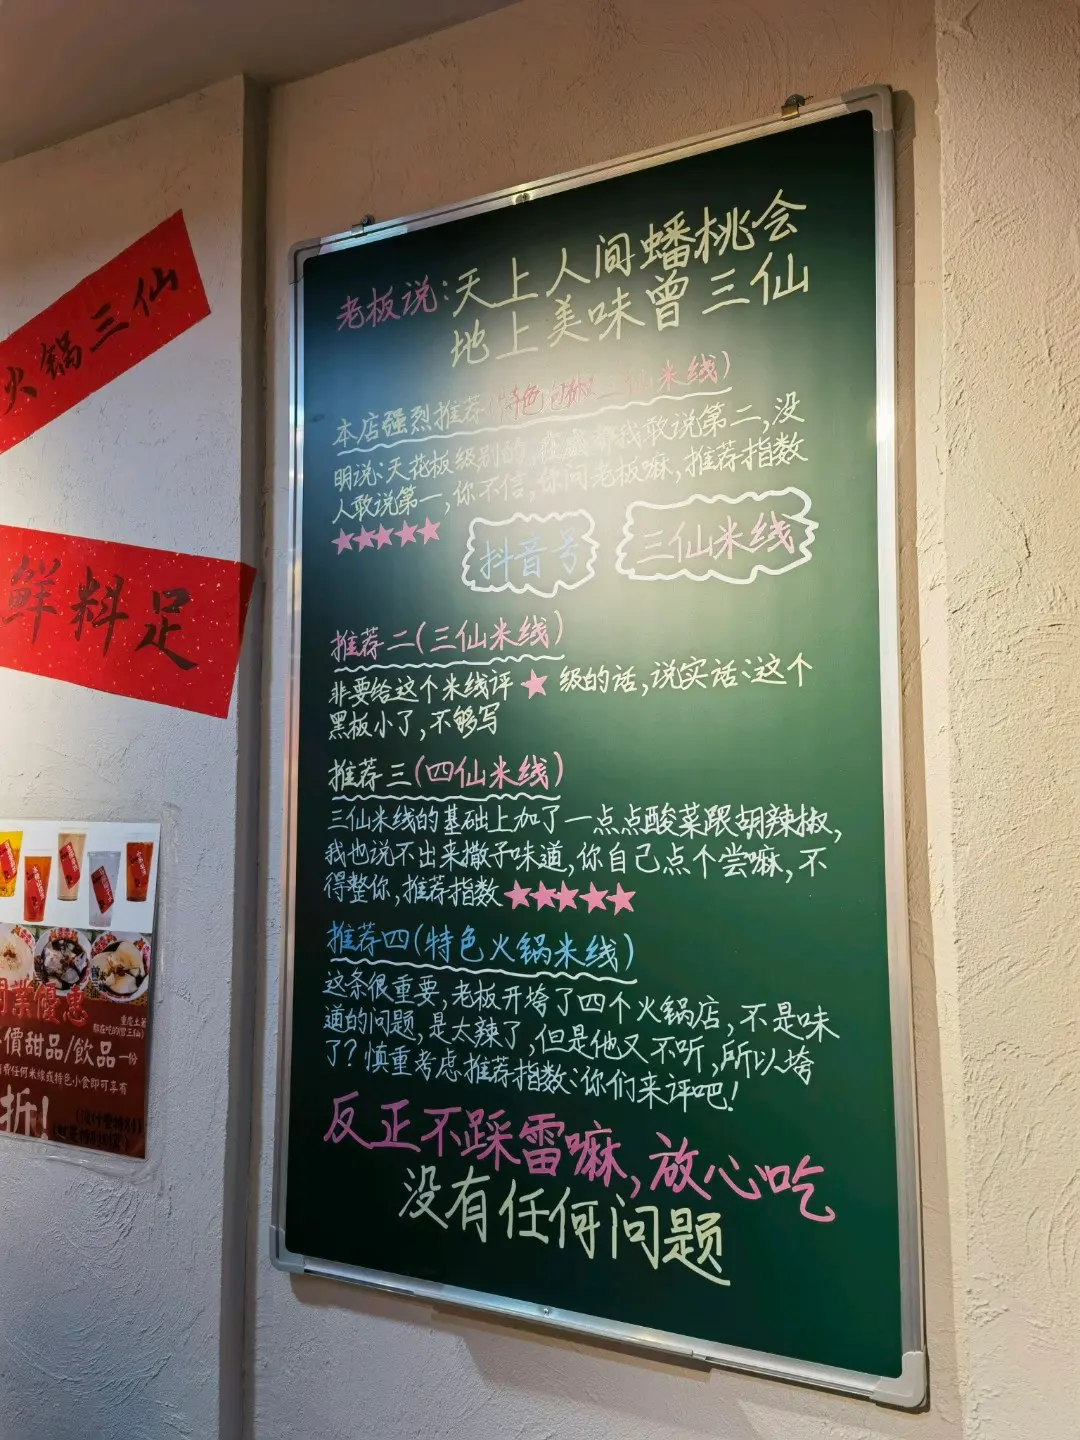 火锅三仙
鲜料足
老板说:天上人间蟠桃会
地上美味曾三仙
本店强烈推荐(特色 椒三仙米线)
明说:天花板级别的, 我敢说第二,没
人敢说第一,你不信,你问老板嘛,推荐指数
★★★★★
抖音号
三仙米线
推荐二(三仙米线)
非要给这个米线评★级的话,说实话:这个
黑板小了,不够写
推荐三(四仙米线)
三仙米线的基础上加了一点点酸菜跟胡辣椒,
我也说不出来撒子味道,你自己点个尝嘛,不
得整你,推荐指数★★★★★
推荐四(特色火锅米线)
这条很重要,老板开垮了四个火锅店,不是味
道的问题,是太辣了,但是他又不听,所以垮
了?慎重考虑推荐指数:你们来评吧!
反正不踩雷嘛,放心吃
没有任何问题
業優惠
重慶土著
都在吃的(曾三仙)
價甜品/飲品一份
費任何米線或特色小食即可享有
折!